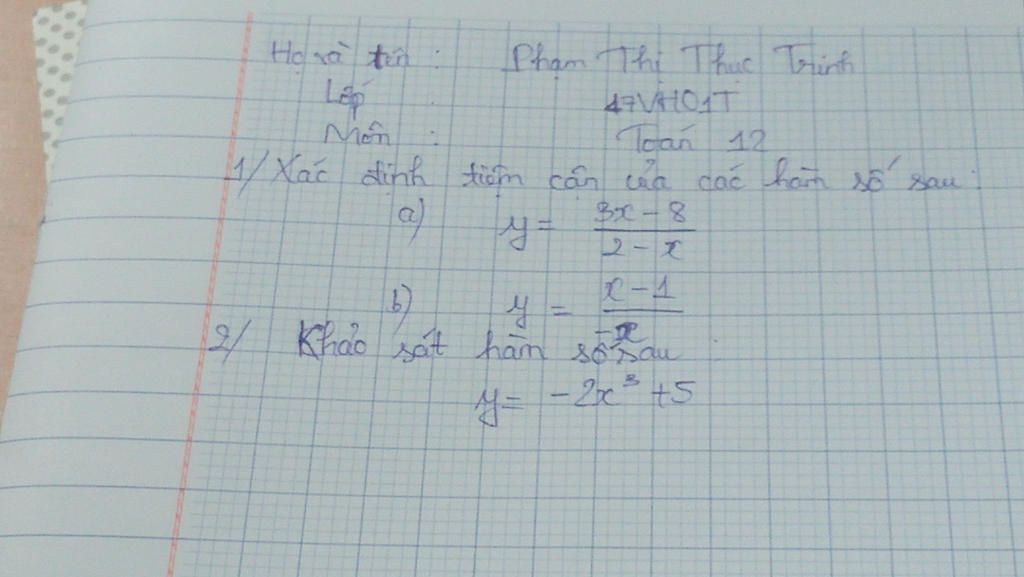 Họ và tên : Phạm Thị Thục Trinh
Lớp : 47VH01T
Môn : Toán 12
1/ Xác định tiệm cận của các hàm số sau :
a) y = \frac{3x - 8}{2 - x}
b) y = \frac{x - 1}{-x}
2/ Khảo sát hàm số sau :
y = -2x³ + 5